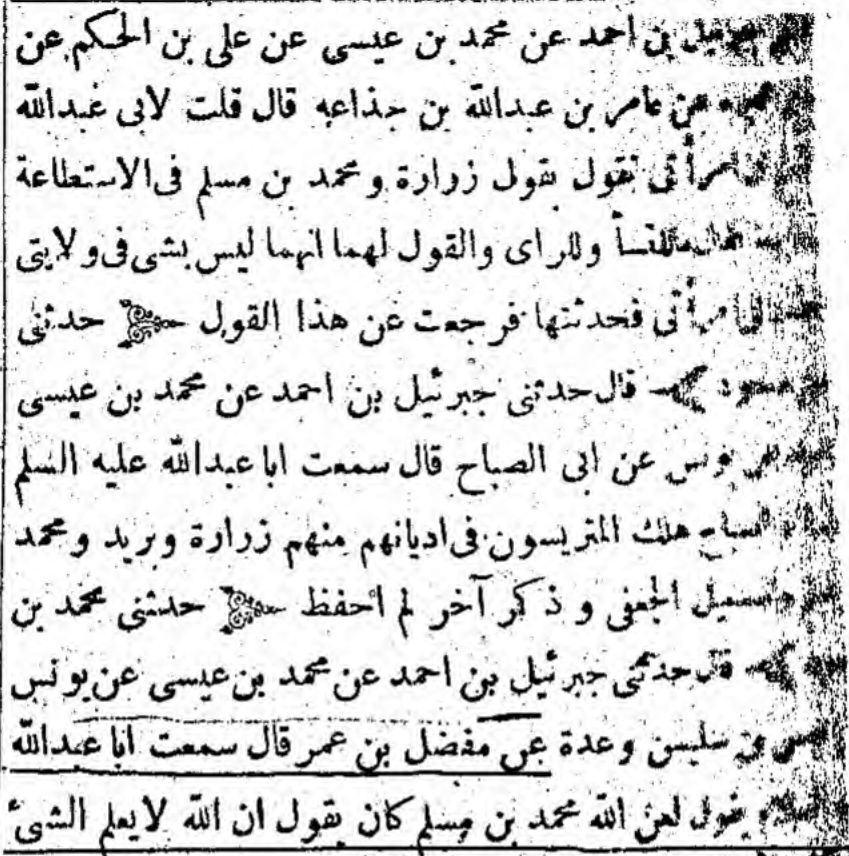 جبرئيل بن احمد عن محمد بن عيسى عن على بن الحكم عن
عن عامر بن عبدالله بن جذاعه قال قلت لابى عبدالله
امرأتى تقول بقول زرارة و محمد بن مسلم فى الاستطاعة
للنسأ وللراى والقول لهما انهما ليس بشى فى ولايتى
امرأتى فحدثتها فرجعت عن هذا القول حدثنى
قال حدثنى جبرئيل بن احمد عن محمد بن عيسى
يونس عن ابى الصباح قال سمعت ابا عبدالله عليه السلم
هلك المتريسون فى اديانهم منهم زرارة وبريد و محمد
الجعفى و ذكر آخر لم احفظ حدثنى محمد بن
قال حدثنى جبرئيل بن احمد عن محمد بن عيسى عن يونس
وعدة عن مفضل بن عمر قال سمعت ابا عبدالله
يقول لعن الله محمد بن مسلم كان يقول ان الله لايعلم الشئ